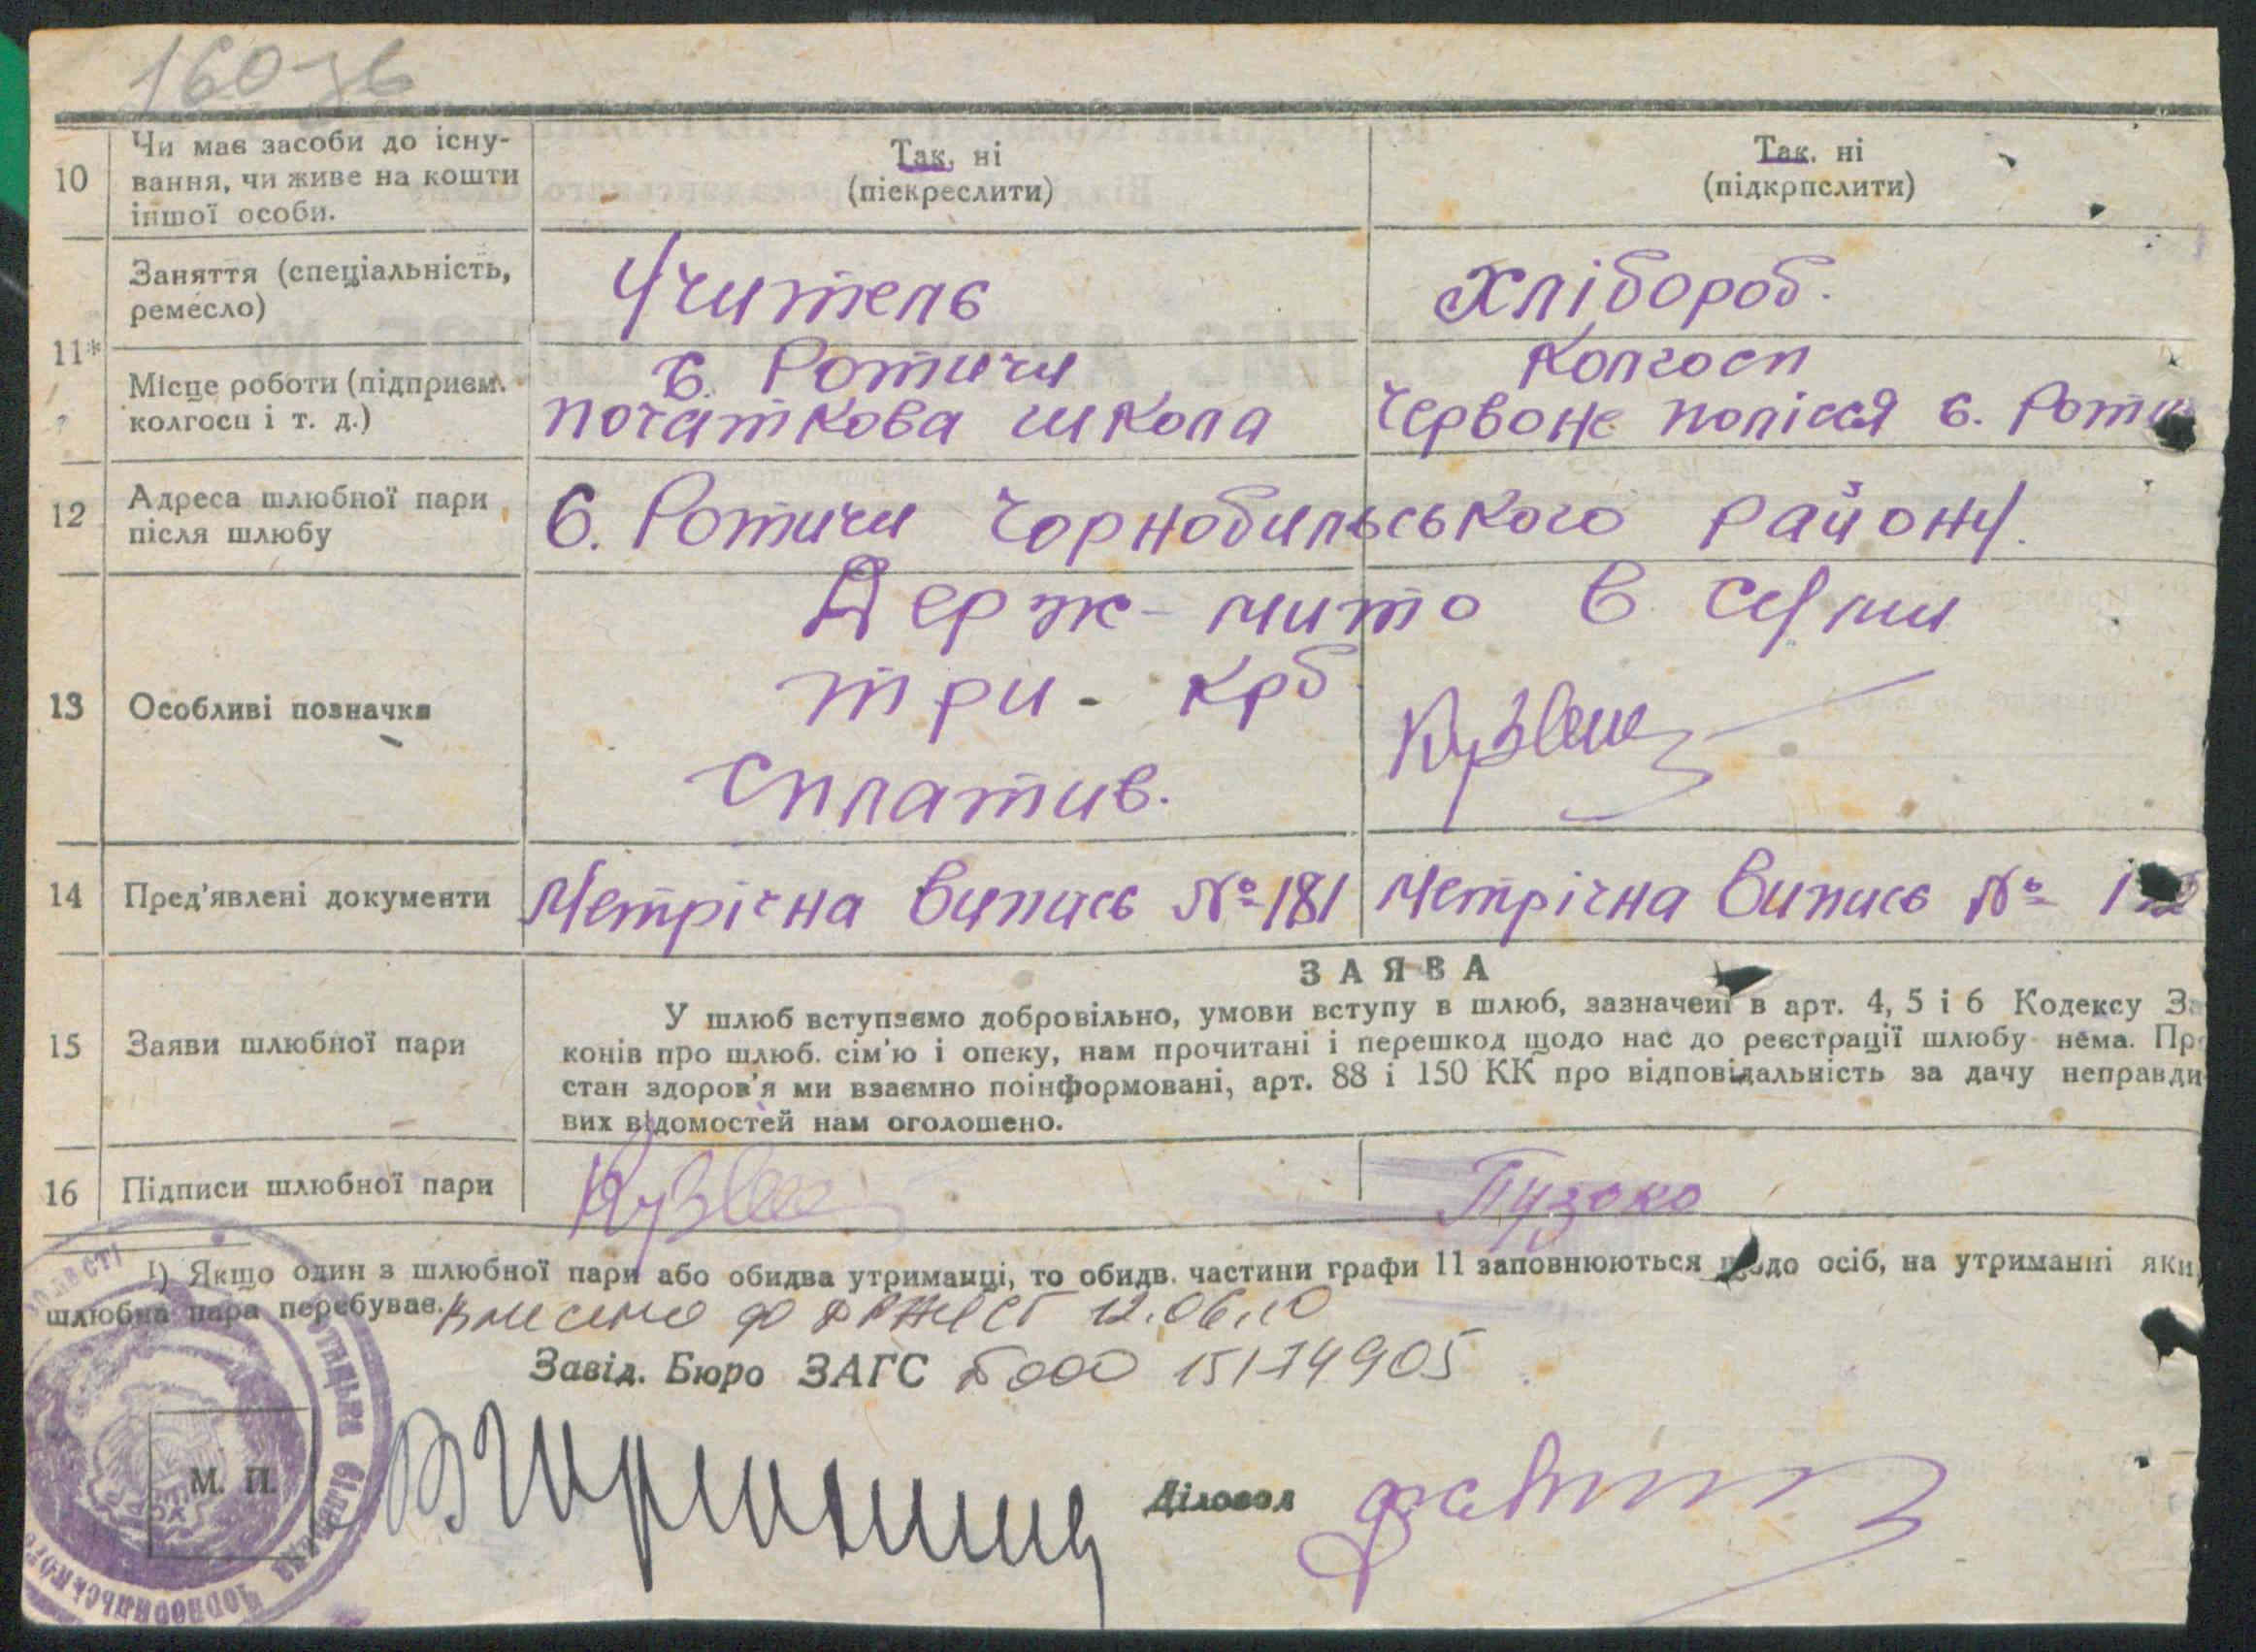 160-зв
10
Чи має засоби до існу-
вання, чи живе на кошти
іншої особи.
Так, ні
(піекреслити)
Так. ні
(підкрпслити)
11*
Заняття (спеціальність,
ремесло)
Учитель
Хлібороб.
Місце роботи (підприєм.
колгосп і т. д.)
с. Ротичи
початкова школа
Колгосп
Червоне полісся с. Роти
12
Адреса шлюбної пари
після шлюбу
с. Ротичи Чорнобильського району.
13
Особливі позначки
Держ-мито в суми
три - крб
сплатив.
14
Пред'явлені документи
Метрічна випись № 181
Метрічна випись №
15
Заяви шлюбної пари
ЗАЯВА
У шлюб вступаємо добровільно, умови вступу в шлюб, зазначені в арт. 4, 5 і 6 Кодексу За
конів про шлюб. сім'ю і опеку, нам прочитані і перешкод щодо нас до реєстрації шлюбу нема. Про
стан здоров'я ми взаємно поінформовані, арт. 88 і 150 КК про відповідальність за дачу неправди
вих відомостей нам оголошено.
16
Підписи шлюбної пари
Пузоко
1) Якщо один з шлюбної пари або обидва утриманці, то обидв. частини графи 11 заповнюються щодо осіб, на утриманні яки
шлюбна пара перебуває.
Внесено до 12.06.10
Завід. Бюро ЗАГС 15174905
М. П.
Діловод